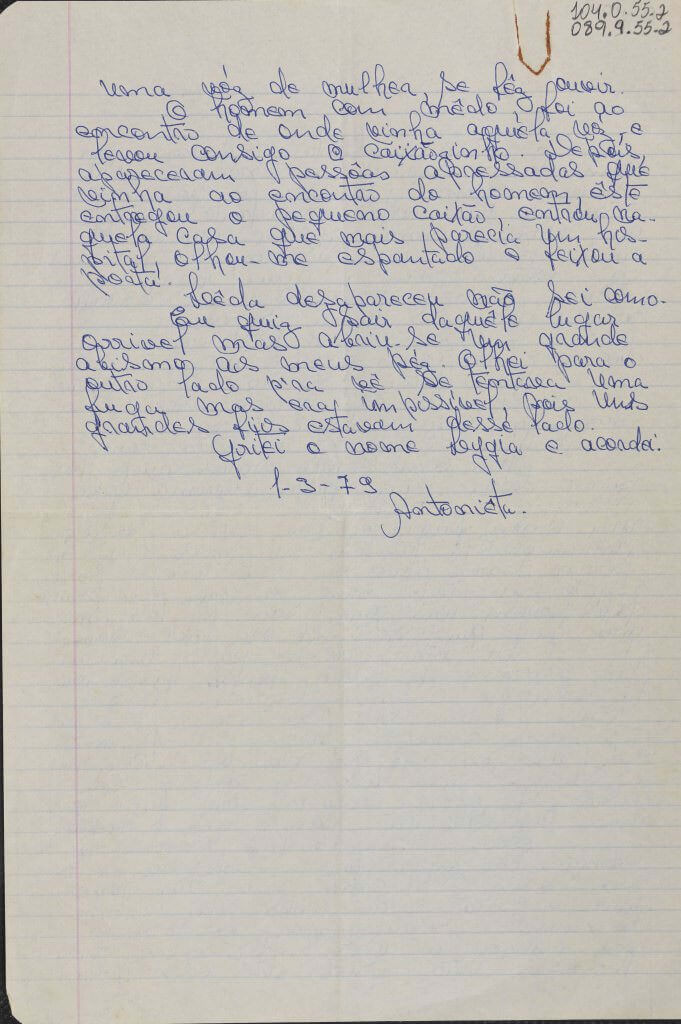 104.0.55-2
089.9.55-2
uma vóz de mulhea, se fêz ouvir.
O homem com mêdo, foi ao
encontrão de onde vinha aquela vós, e
levou consigo o caixãozinho. Depois,
apareceram pessôas apressadas que
vinha ao encontrão do homem, êste
entregou o pequeno caixão, entrou na-
quela casa que mais parecia um hos-
pital, olhou-me espantado e feixou a
poeta.
desapareceu não sei como.
Eu quiz sair daquêle lugar
orrivel mas abriu-se um grande
abismo as meus péz. Olhei para o
outro lado p'ra vê se tentava uma
fuga mas era impissivel, pois uns
grandes fios estavam desse lado.
Gritei o nome Lygia e acordei.
1-3-79
Antoniêta.